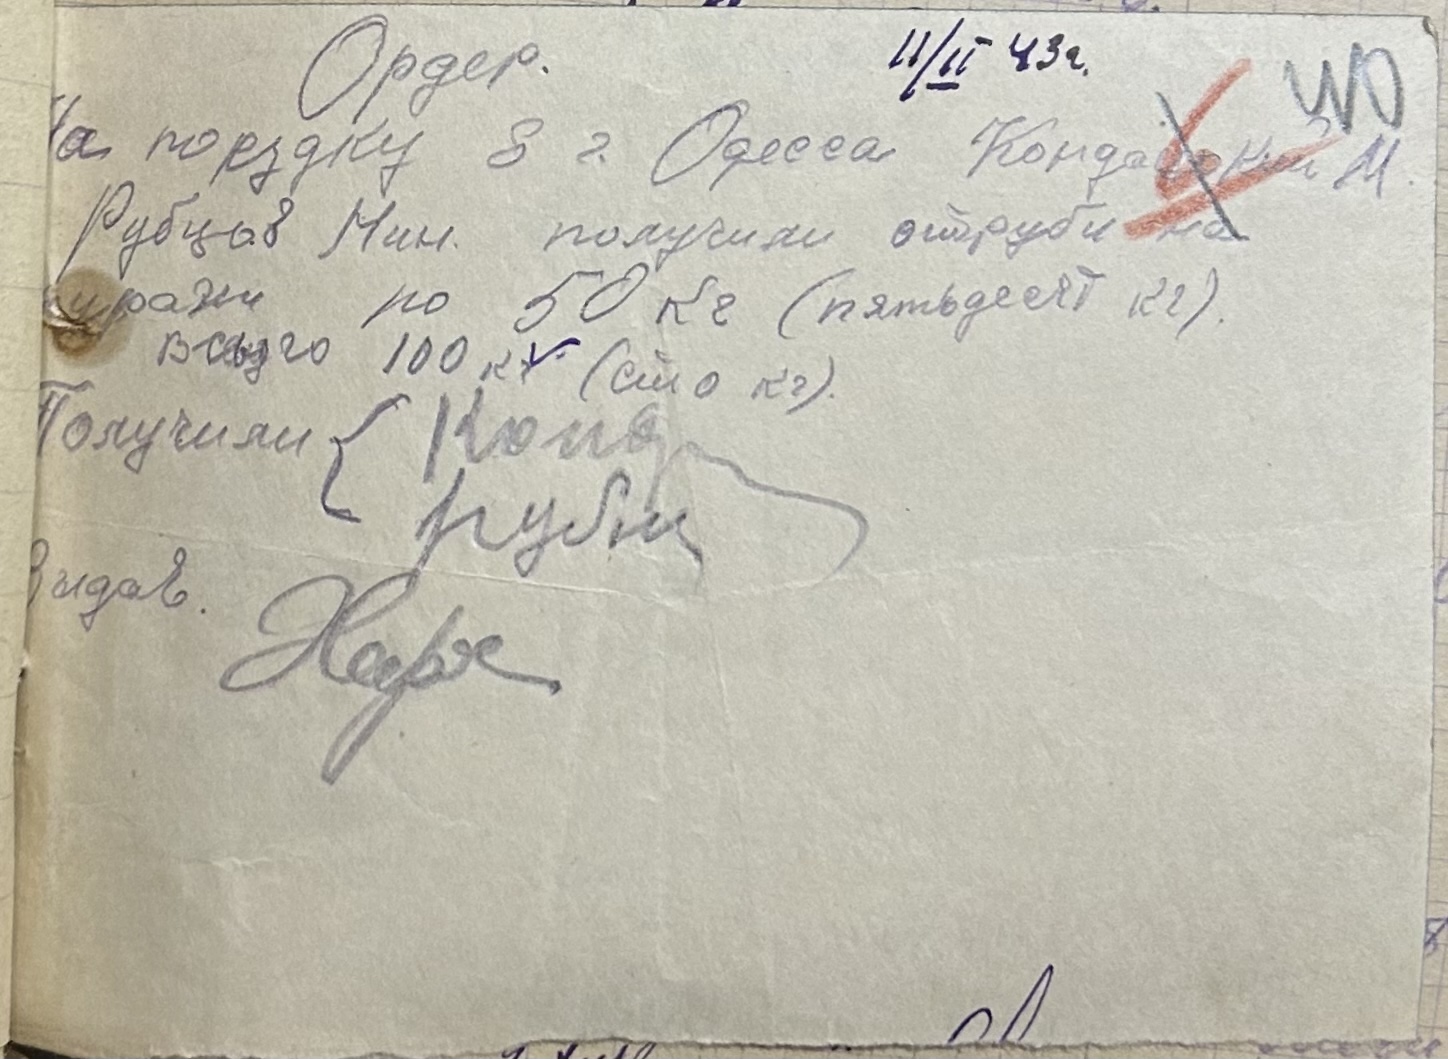 Ордер. 11/II 43г.
На поездку в г. Одесса М.
Рубцов Мин. получили отруби на
фуражи по 50 кг (пятьдесят кг).
всего 100 кг (сто кг).
Получили { Конд
Рубц
Видав.